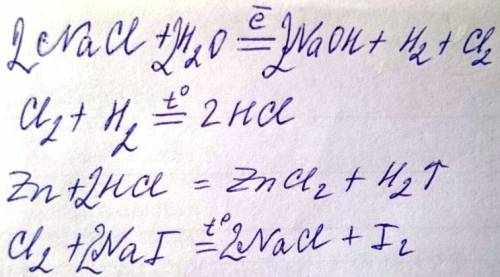 2NaCl + 2H₂O =ē= 2NaOH + H₂ + Cl₂
Cl₂ + H₂ =t°= 2HCl
Zn + 2HCl = ZnCl₂ + H₂↑
Cl₂ + 2NaI =t°= 2NaCl + I₂